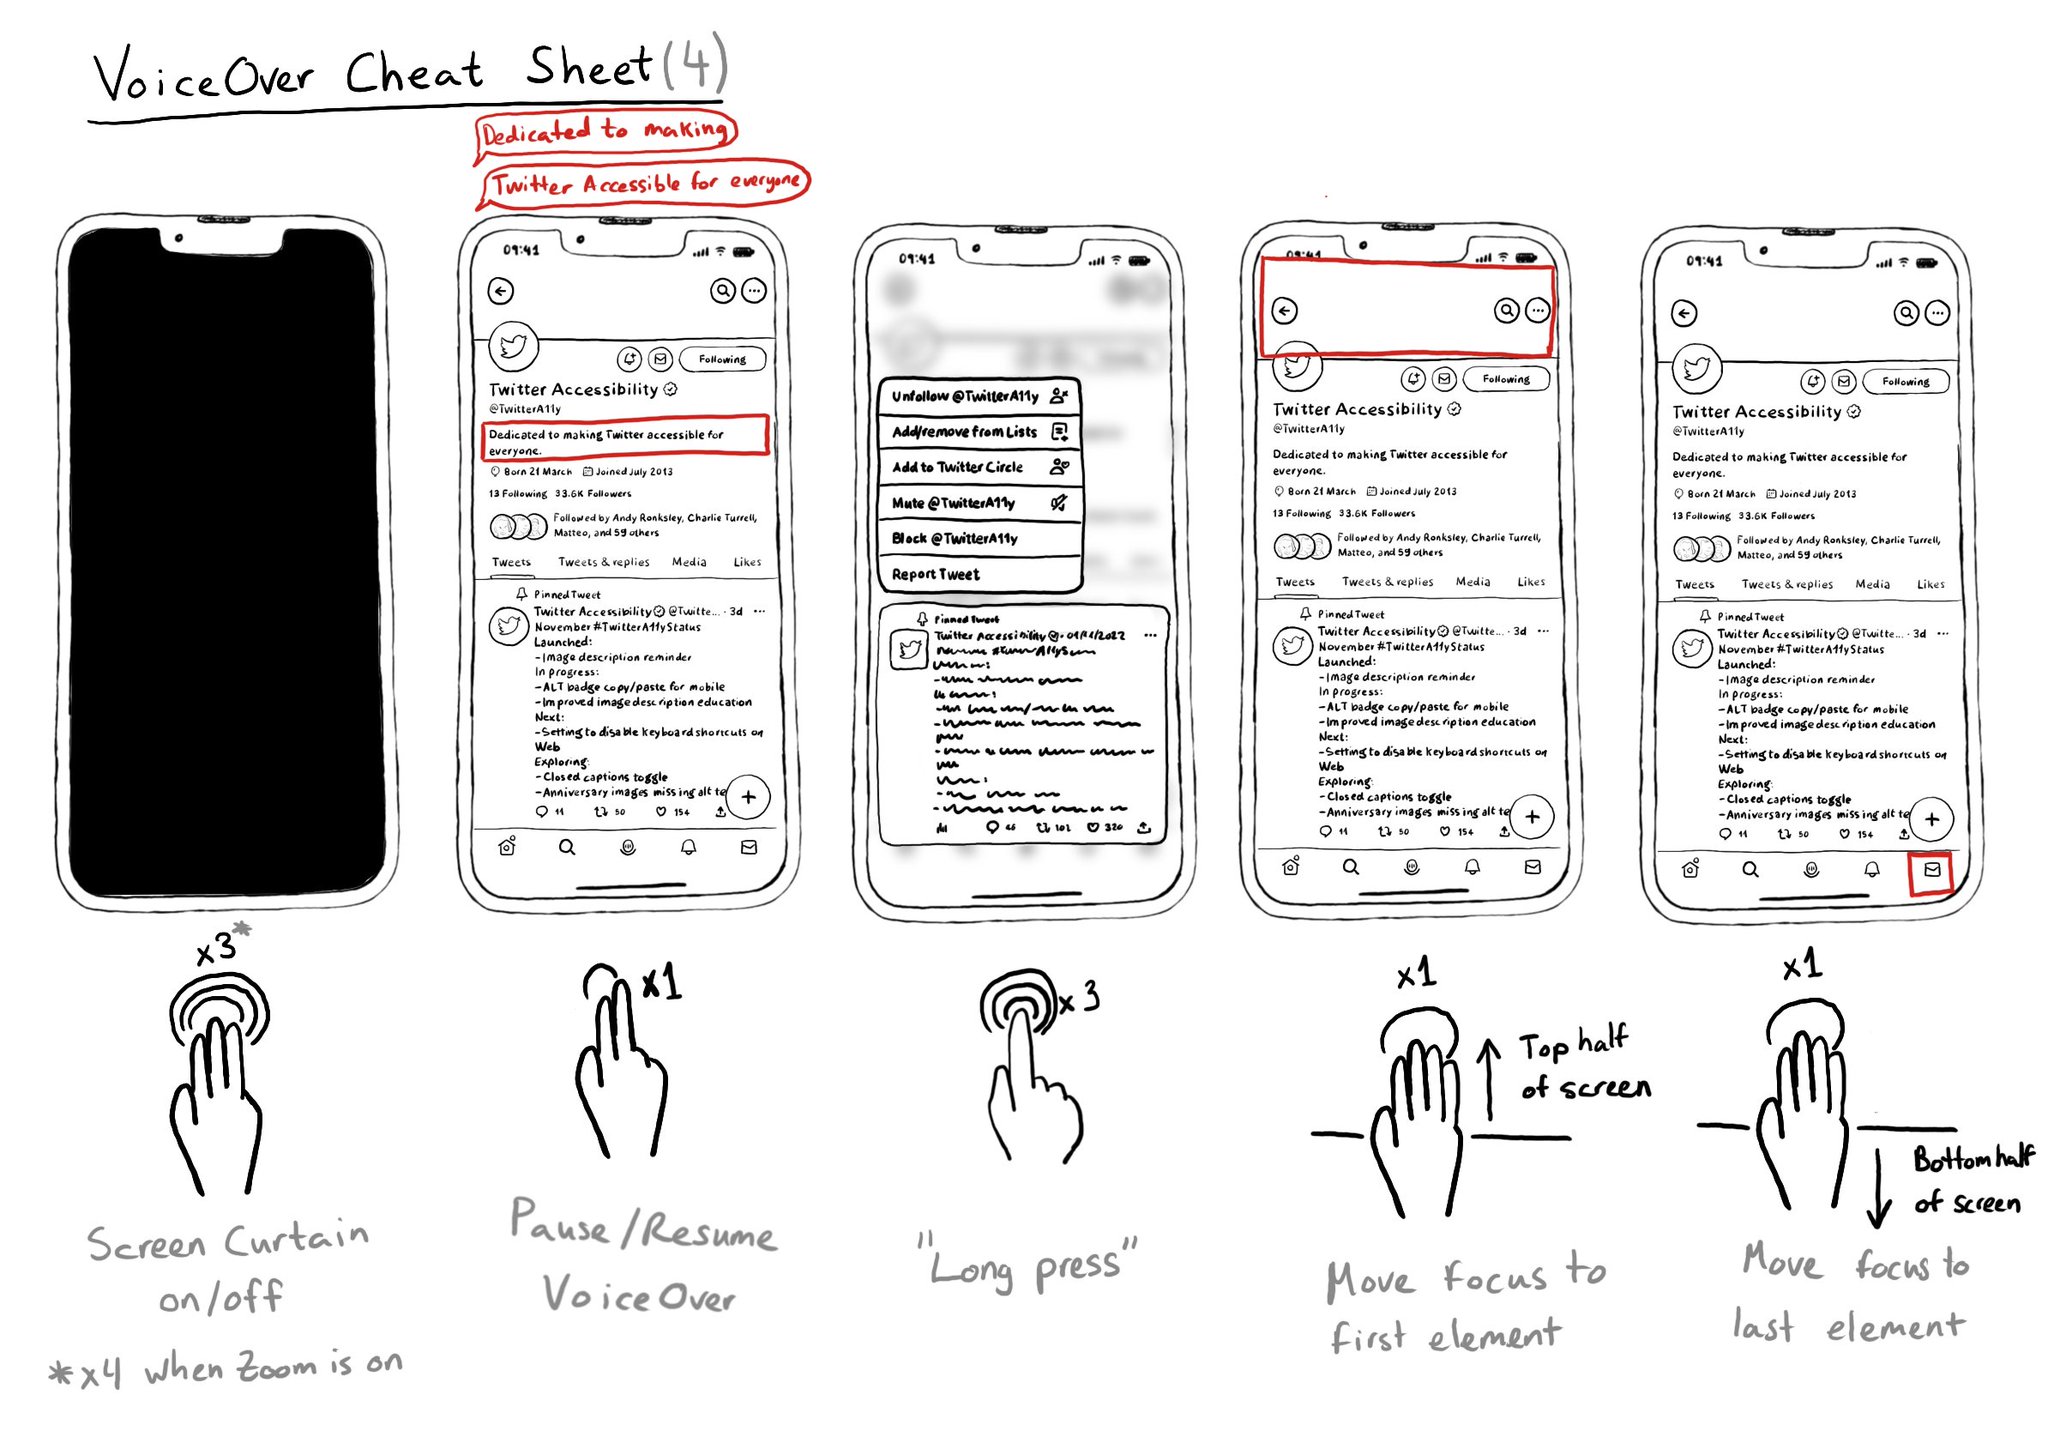 VoiceOver Cheat Sheet (4)
Dedicated to making
Twitter Accessible for everyone
09:41
Following
Twitter Accessibility
@TwitterA11y
Dedicated to making Twitter accessible for
everyone.
Born 21 March Joined July 2013
13 Following 33.6K Followers
Followed by Andy Ronksley, Charlie Turrell,
Matteo, and 59 others
Tweets Tweets & replies Media Likes
Pinned Tweet
Twitter Accessibility @Twitte... · 3d ...
November #TwitterA11yStatus
Launched:
- Image description reminder
In progress:
- ALT badge copy/paste for mobile
- Improved image description education
Next:
- Setting to disable keyboard shortcuts on
Web
Exploring:
- Closed captions toggle
- Anniversary images missing alt te
11 50 154
09:41
Unfollow @TwitterA11y
Add/remove from Lists
Add to Twitter Circle
Mute @TwitterA11y
Block @TwitterA11y
Report Tweet
Pinned Tweet
Twitter Accessibility ...
101 320
09:41
Following
Twitter Accessibility
@TwitterA11y
Dedicated to making Twitter accessible for
everyone.
Born 21 March Joined July 2013
13 Following 33.6K Followers
Followed by Andy Ronksley, Charlie Turrell,
Matteo, and 59 others
Tweets Tweets & replies Media Likes
Pinned Tweet
Twitter Accessibility @Twitte... · 3d ...
November #TwitterA11yStatus
Launched:
- Image description reminder
In progress:
- ALT badge copy/paste for mobile
- Improved image description education
Next:
- Setting to disable keyboard shortcuts on
Web
Exploring:
- Closed captions toggle
- Anniversary images missing alt te
11 50 154
09:41
Following
Twitter Accessibility
@TwitterA11y
Dedicated to making Twitter accessible for
everyone.
Born 21 March Joined July 2013
13 Following 33.6K Followers
Followed by Andy Ronksley, Charlie Turrell,
Matteo, and 59 others
Tweets Tweets & replies Media Likes
Pinned Tweet
Twitter Accessibility @Twitte... · 3d ...
November #TwitterA11yStatus
Launched:
- Image description reminder
In progress:
- ALT badge copy/paste for mobile
- Improved image description education
Next:
- Setting to disable keyboard shortcuts on
Web
Exploring:
- Closed captions toggle
- Anniversary images missing alt te
11 50 154
x3*
Screen Curtain
on/off
*x4 when Zoom is on
x1
Pause/Resume
VoiceOver
x3
"Long press"
x1
Top half
of screen
Move focus to
first element
x1
Bottom half
of screen
Move focus to
last element